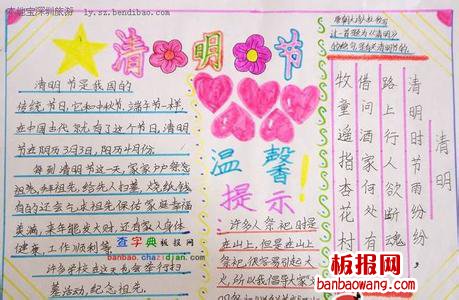 本地宝深圳旅游 ly.sz.bendibao.com
清明节
清明节是我国的
传统节日,它和中秋节、端午节一样
在中国古代就有了这个节日,清明
节在阴历3月3日,阳历4月份
每到清明节这一天,家家户户祭念
祖先,给先人扫墓,烧纸钱
有的还会求祖先保佑家庭幸福
美满,来年能发大财,还有家人身体
健康,工作顺利等
查字典板报网
banbao.chazidian.com
许多学校在这一天会举行扫
墓活动,纪念祖先.
温馨
提示!
许多人祭祀时提
在山上,但是在山上
祭祀,很容易引起大
火,所以我倡导大家
唐朝大诗人杜牧
清明
清明时节雨纷纷,
路上行人欲断魂
借问酒家何处有
牧童遥指杏花村
板报网
www.banbaowang.com